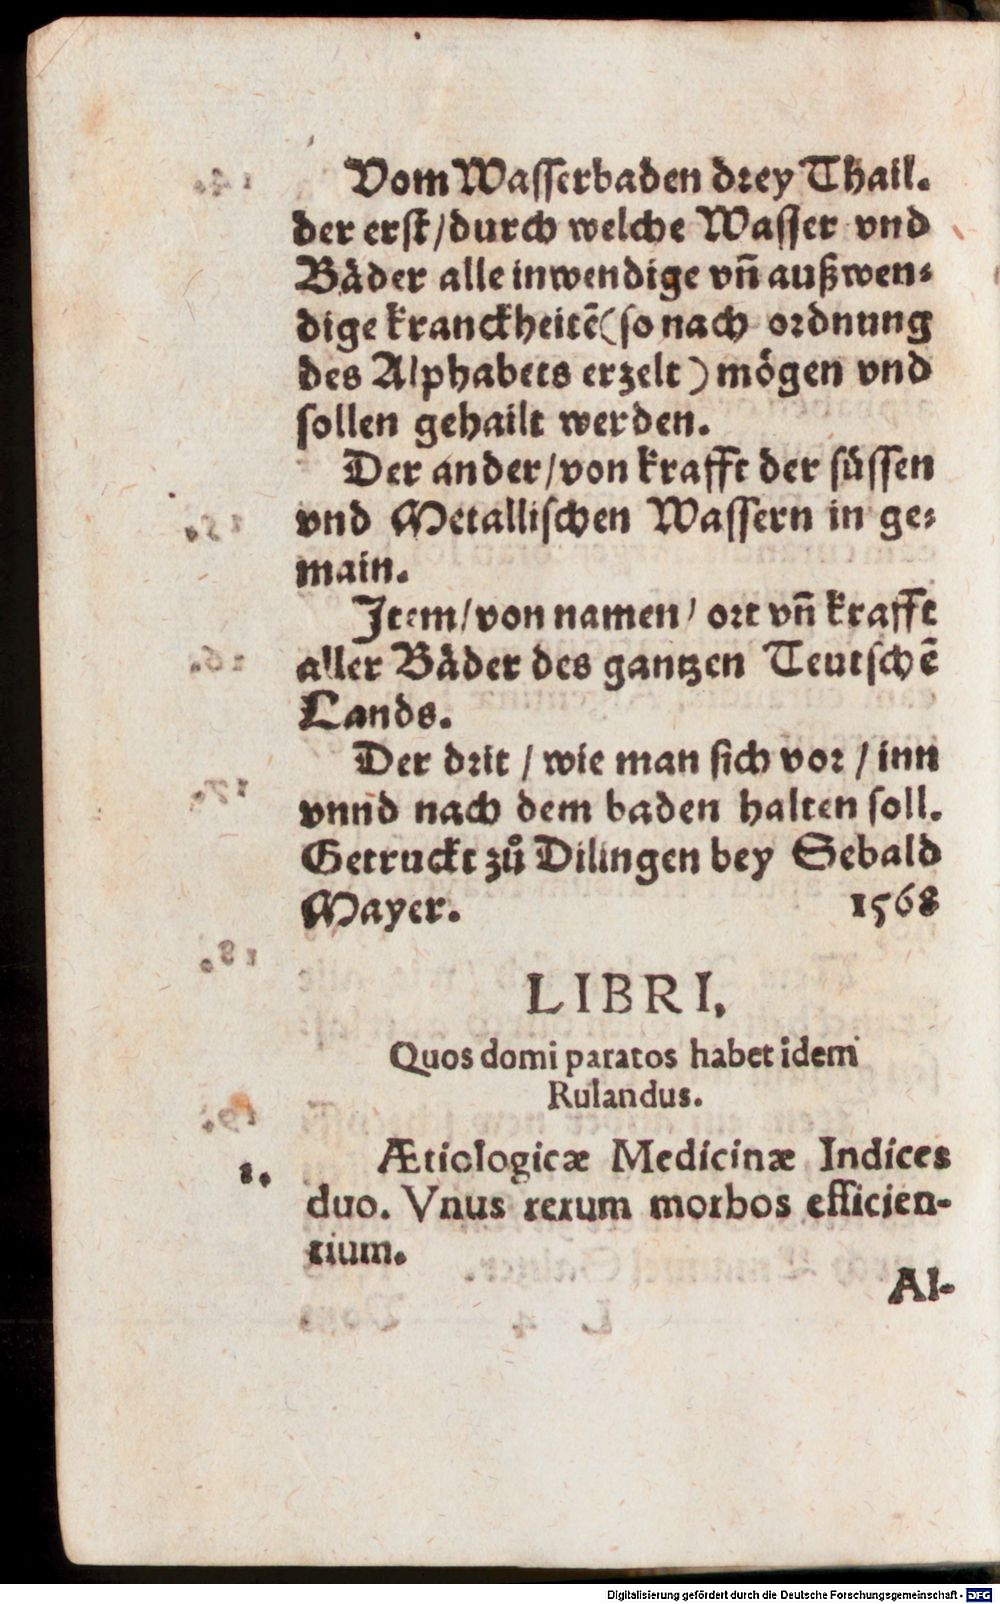 Vom Wasserbaden drey Thail.
der erst/durch welche Wasser vnd
Bäder alle inwendige vñ außwen-
dige kranckheitẽ(so nach ordnung
des Alphabets erzelt) mögen vnd
sollen gehailt werden.
Der ander/von krafft der süssen
vnd Metallischen Wassern in ge-
main.
Item/von namen/ ort vñ krafft
aller Bäder des gantzen Teutschẽ
Lands.
Der drit / wie man sich vor / inn
vnnd nach dem baden halten soll.
Getruckt zů Dilingen bey Sebald
Mayer. 1568
LIBRI,
Quos domi paratos habet idem
Rulandus.
1. Ætiologicæ Medicinæ Indices
duo. Vnus rerum morbos efficien-
tium.
Al-
Digitalisierung gefördert durch die Deutsche Forschungsgemeinschaft - DFG